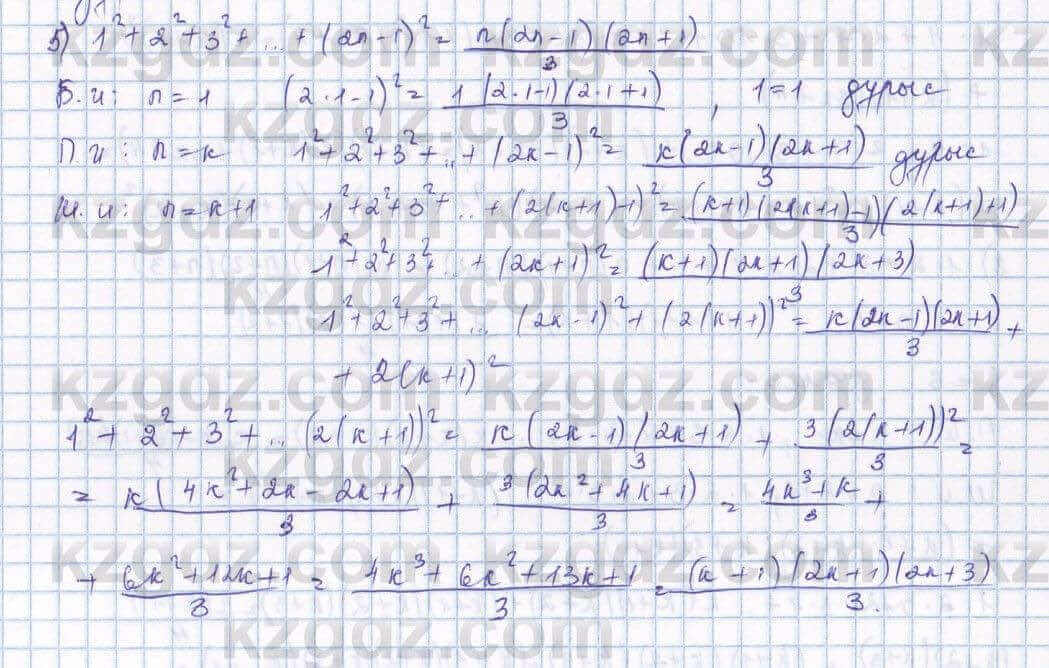 5) 1²+2²+3²+...+(2n-1)²= n(2n-1)(2n+1)/3
Б.и: n=1 (2·1-1)²= 1(2·1-1)(2·1+1)/3, 1=1 дұрыс
П и: n=k 1²+2²+3²+..+(2k-1)²= k(2k-1)(2k+1)/3 дұрыс
И.и: n=k+1 1²+2²+3²+..+(2(k+1)-1)²= (k+1)(2(k+1)-1)(2(k+1)+1)/3
1²+2²+3²+..+(2k+1)²= (k+1)(2k+1)(2k+3)/3
1²+2²+3²+...(2k-1)²+(2(k+1))²= k(2k-1)(2k+1)/3 +
+ 2(k+1)²
1²+2²+3²+...(2(k+1))²= k(2k-1)(2k+1)/3 + 3(2(k+1))²/3 =
= k(4k²+2k-2k+1)/3 + 3(2k²+4k+1)/3 = 4k³+k/3 +
+ 6k²+12k+1/3 = 4k³+6k²+13k+1/3 = (k+1)(2k+1)(2k+3)/3.
kzgdz.com